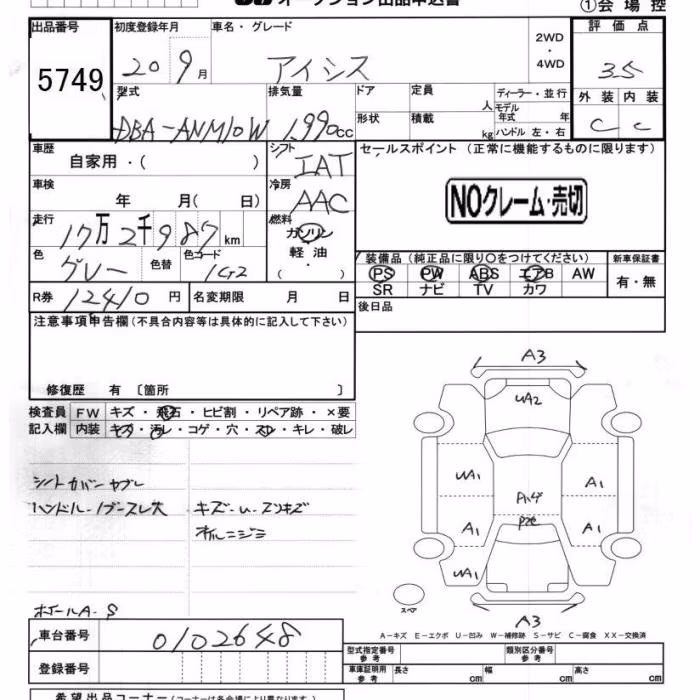 オークション出品申込書
①会場控
出品番号 5749
初度登録年月 20 9月
車名・グレード アイシス
2WD・4WD
評価点 3.5
型式 DBA-ANM10W
排気量 1,990cc
ドア
定員 人
ディーラー・並行
モデル年式 年
外装 内装
C C
形状
積載 kg
ハンドル 左・右
車歴 自家用・( )
シフト IAT
セールスポイント (正常に機能するものに限ります)
車検 年 月( 日)
冷房 AAC
NOクレーム・売切
走行 17万2千987km
燃料 ガソリン 軽油 ( ・ )
色 グレー 色替 色コード 1G2
装備品(純正品に限り○をつけてください)
新車保証書
PS PW ABS エアB AW
SR ナビ TV カワ
有・無
R券 12410円 名変期限 月 日
後日品
注意事項申告欄(不具合内容等は具体的に記入して下さい)
修復歴 有 〔箇所 〕
検査員記入欄
FW キズ・飛石・ヒビ割・リペア跡・×要
内装 キズ・汚レ・コゲ・穴・スレ・キレ・破レ
シートカバーヤブレ
ハンドル・ノブスレ大
キズ・U・スリキズ
ホイールA・S
A3
UA2
UA1
A1
A1
A1
UA1
スペア
A3
A-キズ E-エクボ U-凹み W-補修跡 S-サビ C-腐食 XX-交換済
車台番号 0102648
登録番号
型式指定番号 参考
類別区分番号 参考
車庫証明用 参考 長さ cm 幅 cm 高さ cm
希望出品コーナー(コーナーは各会場により異なります)